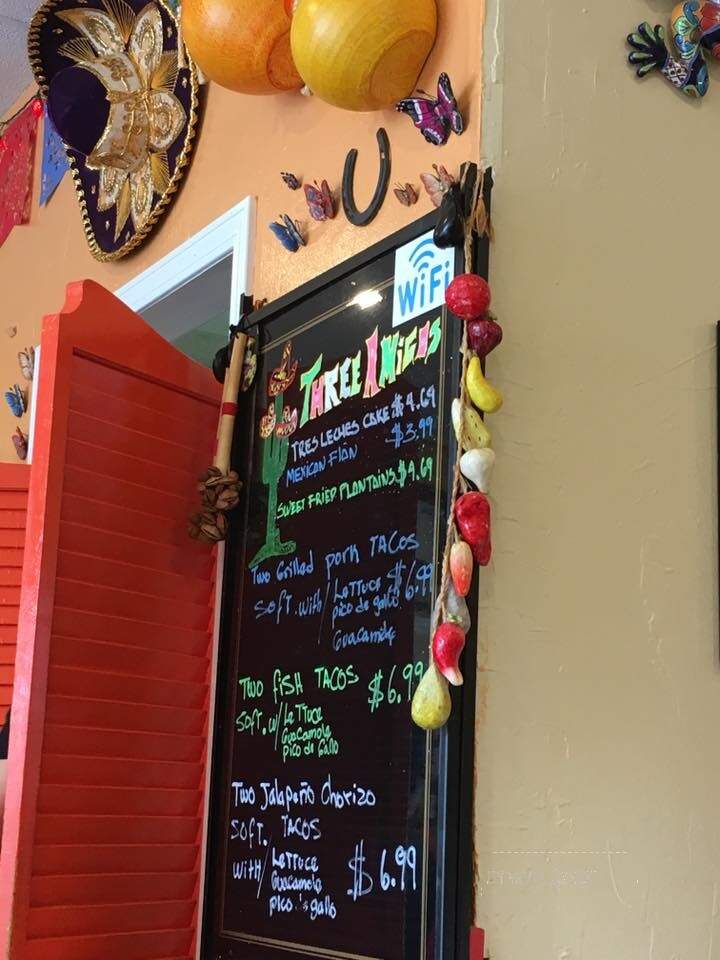 WiFi
THREE AMiGOS
TRES LECHES CAKE $4.69
MEXICAN FlAN $3.99
SWEET FRIED PLANTAINS $4.69
Two Grilled pork TACOS
SofT. with/ LeTTuce $6.99
pico de gallo.
Guacamole
TWO fiSH TACOS $6.99
SofT. w/ LeTTuce
Guacamole
pico de Gallo
Two Jalapeño Chorizo
SOFT. TACOS
WITH/ LeTTuce $6.99
Guacamole
pico gallo